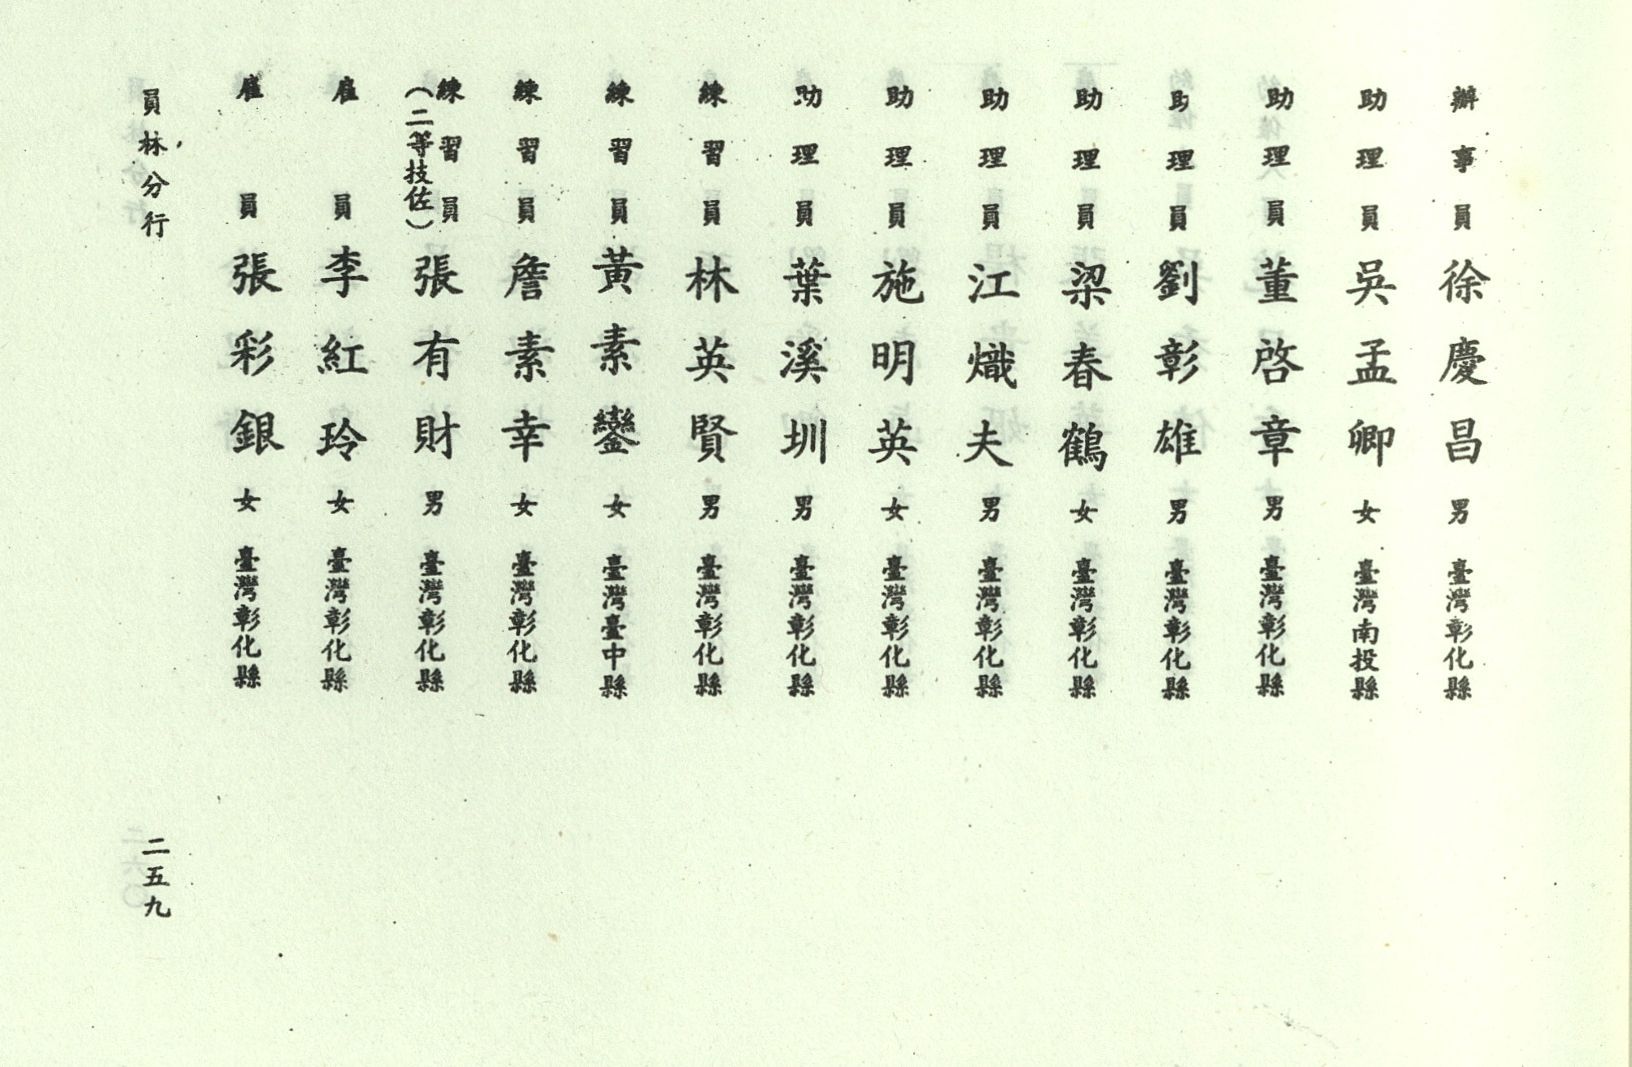 辦事員徐慶昌男臺灣彰化縣
助理員吳孟卿女臺灣南投縣
助理員董啓章男臺灣彰化縣
助理員劉彰雄男臺灣彰化縣
助理員梁春鶴女臺灣彰化縣
助理員江熾夫男臺灣彰化縣
助理員施明英女臺灣彰化縣
助理員葉溪圳男臺灣彰化縣
練習員林英賢男臺灣彰化縣
練習員黃素鑾女臺灣臺中縣
練習員詹素幸女臺灣彰化縣
練習員(二等技佐)張有財男臺灣彰化縣
雇員李紅玲女臺灣彰化縣
雇員張彩銀女臺灣彰化縣
員林分行
二五九